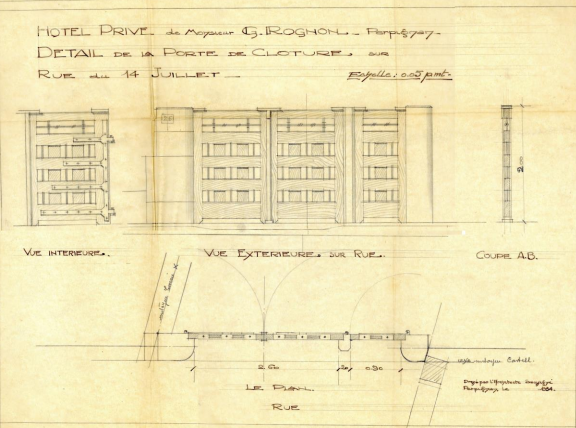 HOTEL PRIVE de Monsieur G. ROGNON. Perpignan.
DETAIL DE LA PORTE DE CLOTURE, SUR
RUE du 14 JUILLET
Echelle: 0.05 p.mt.
2.00
VUE INTERIEURE.
VUE EXTERIEURE SUR RUE.
COUPE A.B.
2.60
20
0.90
LE PLAN.
RUE
Dressé par l'Architecte soussigné
Perpignan, le